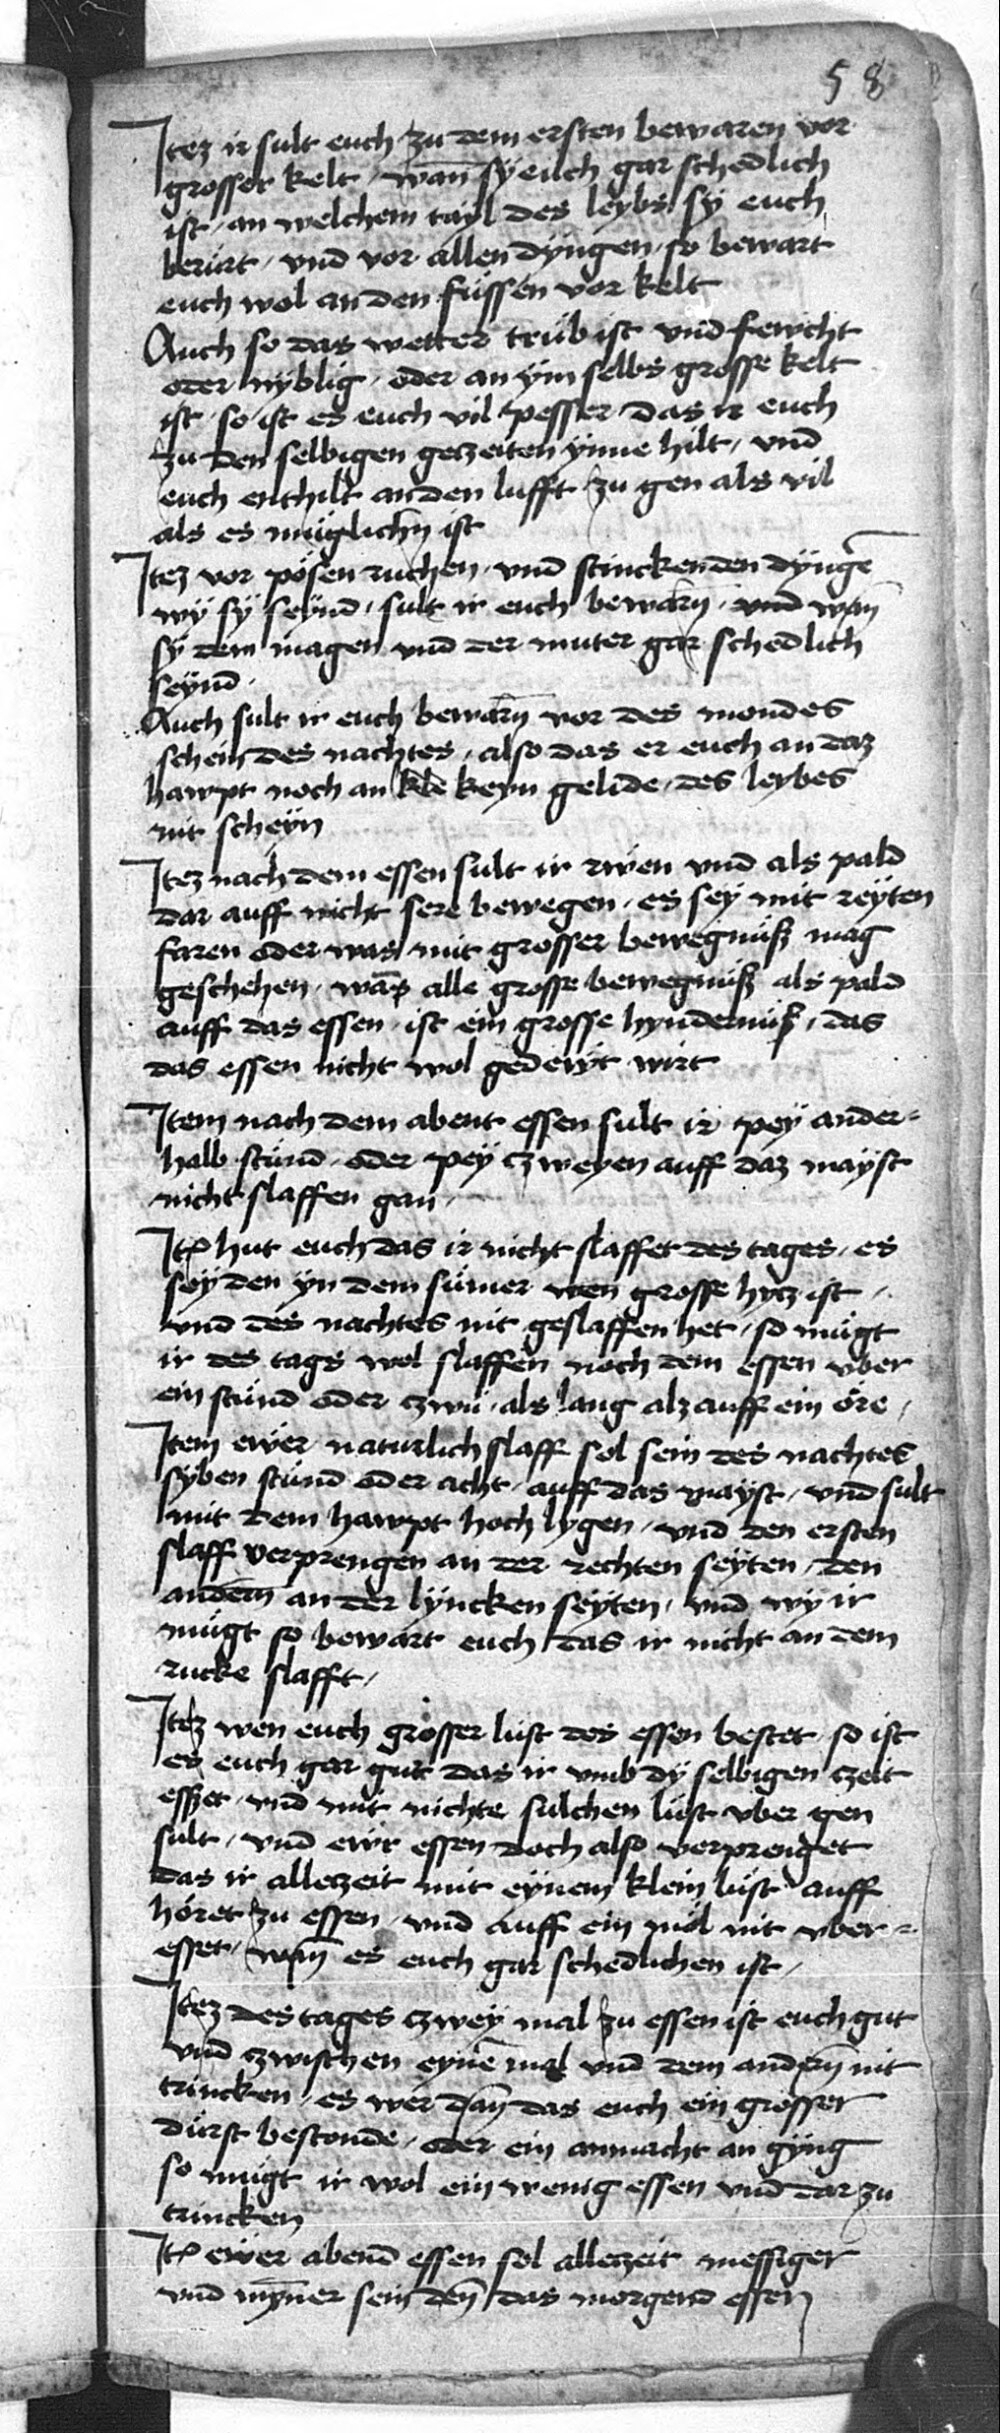 58
Itez ir sult euch zu dem ersten bewaren vor
grosser kelt / wan̄ sy euch gar schedlich
ist / an welchem tayl des leybs sy euch
berürt / vnd vor allen dyngen / so bewart
euch wol an den füssen vor kelt
Auch so das wetter trüb ist vnd fewcht
oder nyblig / oder an ym selbs grosse kelt
ist / so ist es euch vil pesser das ir euch
zu den selbigen geczeiten ynne hilt / vnd
euch enthilt an den lufft zu gen als vil
als es müglichn ist
Itez vor pösen ruchen / vnd stinckenden dynge
wy sy seynd / sult ir euch bewarn̄ / vnd wan̄
sy dem magen vnd der muter gar schedlich
seynd /
Auch sult ir euch bewarn̄ vor des mondes
schein des nachtes / also das er euch an daz
hawpt noch an keyn gelide / des leybes
nit scheyn
Itez nach dem essen sult ir rwen vnd als pald
dar auff nicht sere bewegen / es sey mit reyten
faren oder was mit grosser bewegnüß mag
geschehen / wan̄ alle grosse bewegnüß als pald
auff das essen / ist ein grosse hyndernüß / das
das essen nicht wol gedewt wirt
Item nach dem abent essen sult ir pey ander=
halb stund / oder pey czweyen auff daz mayst
nicht slaffen gan /
It̄ hut euch das ir nicht slaffet des tages / es
sey den yn dem sumer wen grosse hytz ist /
vnd des nachtes nit geslaffen het / so mügt
ir des tags wol slaffen noch dem essen vber
ein stund oder czwu / als lang alz auff ein öre /
Item ewer naturlich slaff sol sein des nachtes
syben stund oder acht / auff das mayst / vnd sult
mit dem hawpt hoch lygen / vnd den ersten
slaff verprengen an der rechten seyten / den
andern̄ an der lyncken seyten / vnd wy ir
mügt so bewart euch das ir nicht an dem
rucke slafft /
Itez wen euch grosser lust des essen bestet / so ist
es euch gar gut das ir vmb dy selbigen czeit
esset / vnd mit nichte sulchen lust vber gen
sult / vnd ewr essen doch also verprenget
das ir alleczeit mit eynem klein lust auff
höret zu essen / vnd auff ein möl nit vber=
esset / wan̄ es euch gar schedlichen ist /
Itez des tages czwey mal zu essen ist euch gut
vnd czwischen eynē mal vnd dem andern̄ nit
trincken / es wer dan̄ das euch ein grosser
durst bestonde / oder ein anmacht an gyng
so mügt ir wol ein wenig essen vnd dar zu
trincken
It̄ ewer abend essen sol alleczeit messiger
vnd myner sein den̄ das morgend essen